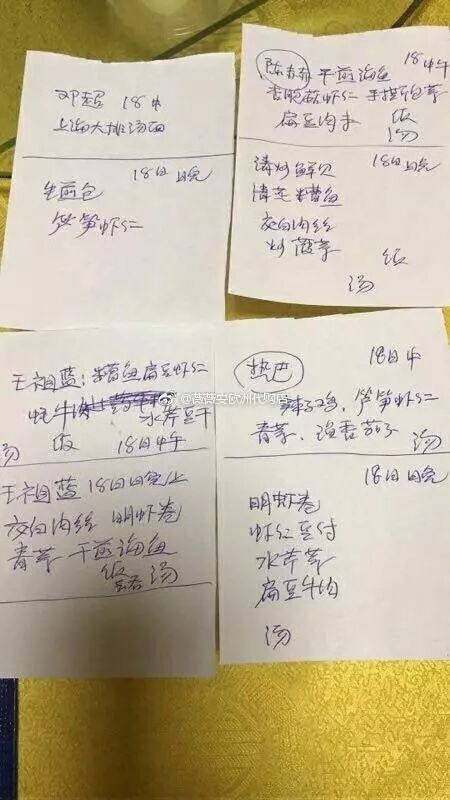 邓超 18中
上海大排汤面
18日晚
生煎包
芦笋虾仁
干煎海鱼 18中午
杏鲍菇虾仁 手撕包菜
扁豆肉末 饭
汤
清炒鲜贝 18日晚
清蒸糟鱼
交白肉丝
炒菠菜 饭
汤
王祖蓝：糟鱼 扁豆虾仁
水芹豆干
汤 饭 18日中午
王祖蓝 18日晚上
交白肉丝 明虾卷
青菜 干煎海鱼
饭 汤
热巴 18日中
辣子鸡、芦笋虾仁
青菜、鱼香茄子 汤
18日晚
明虾卷
虾仁豆付
水芹菜
扁豆牛肉
汤